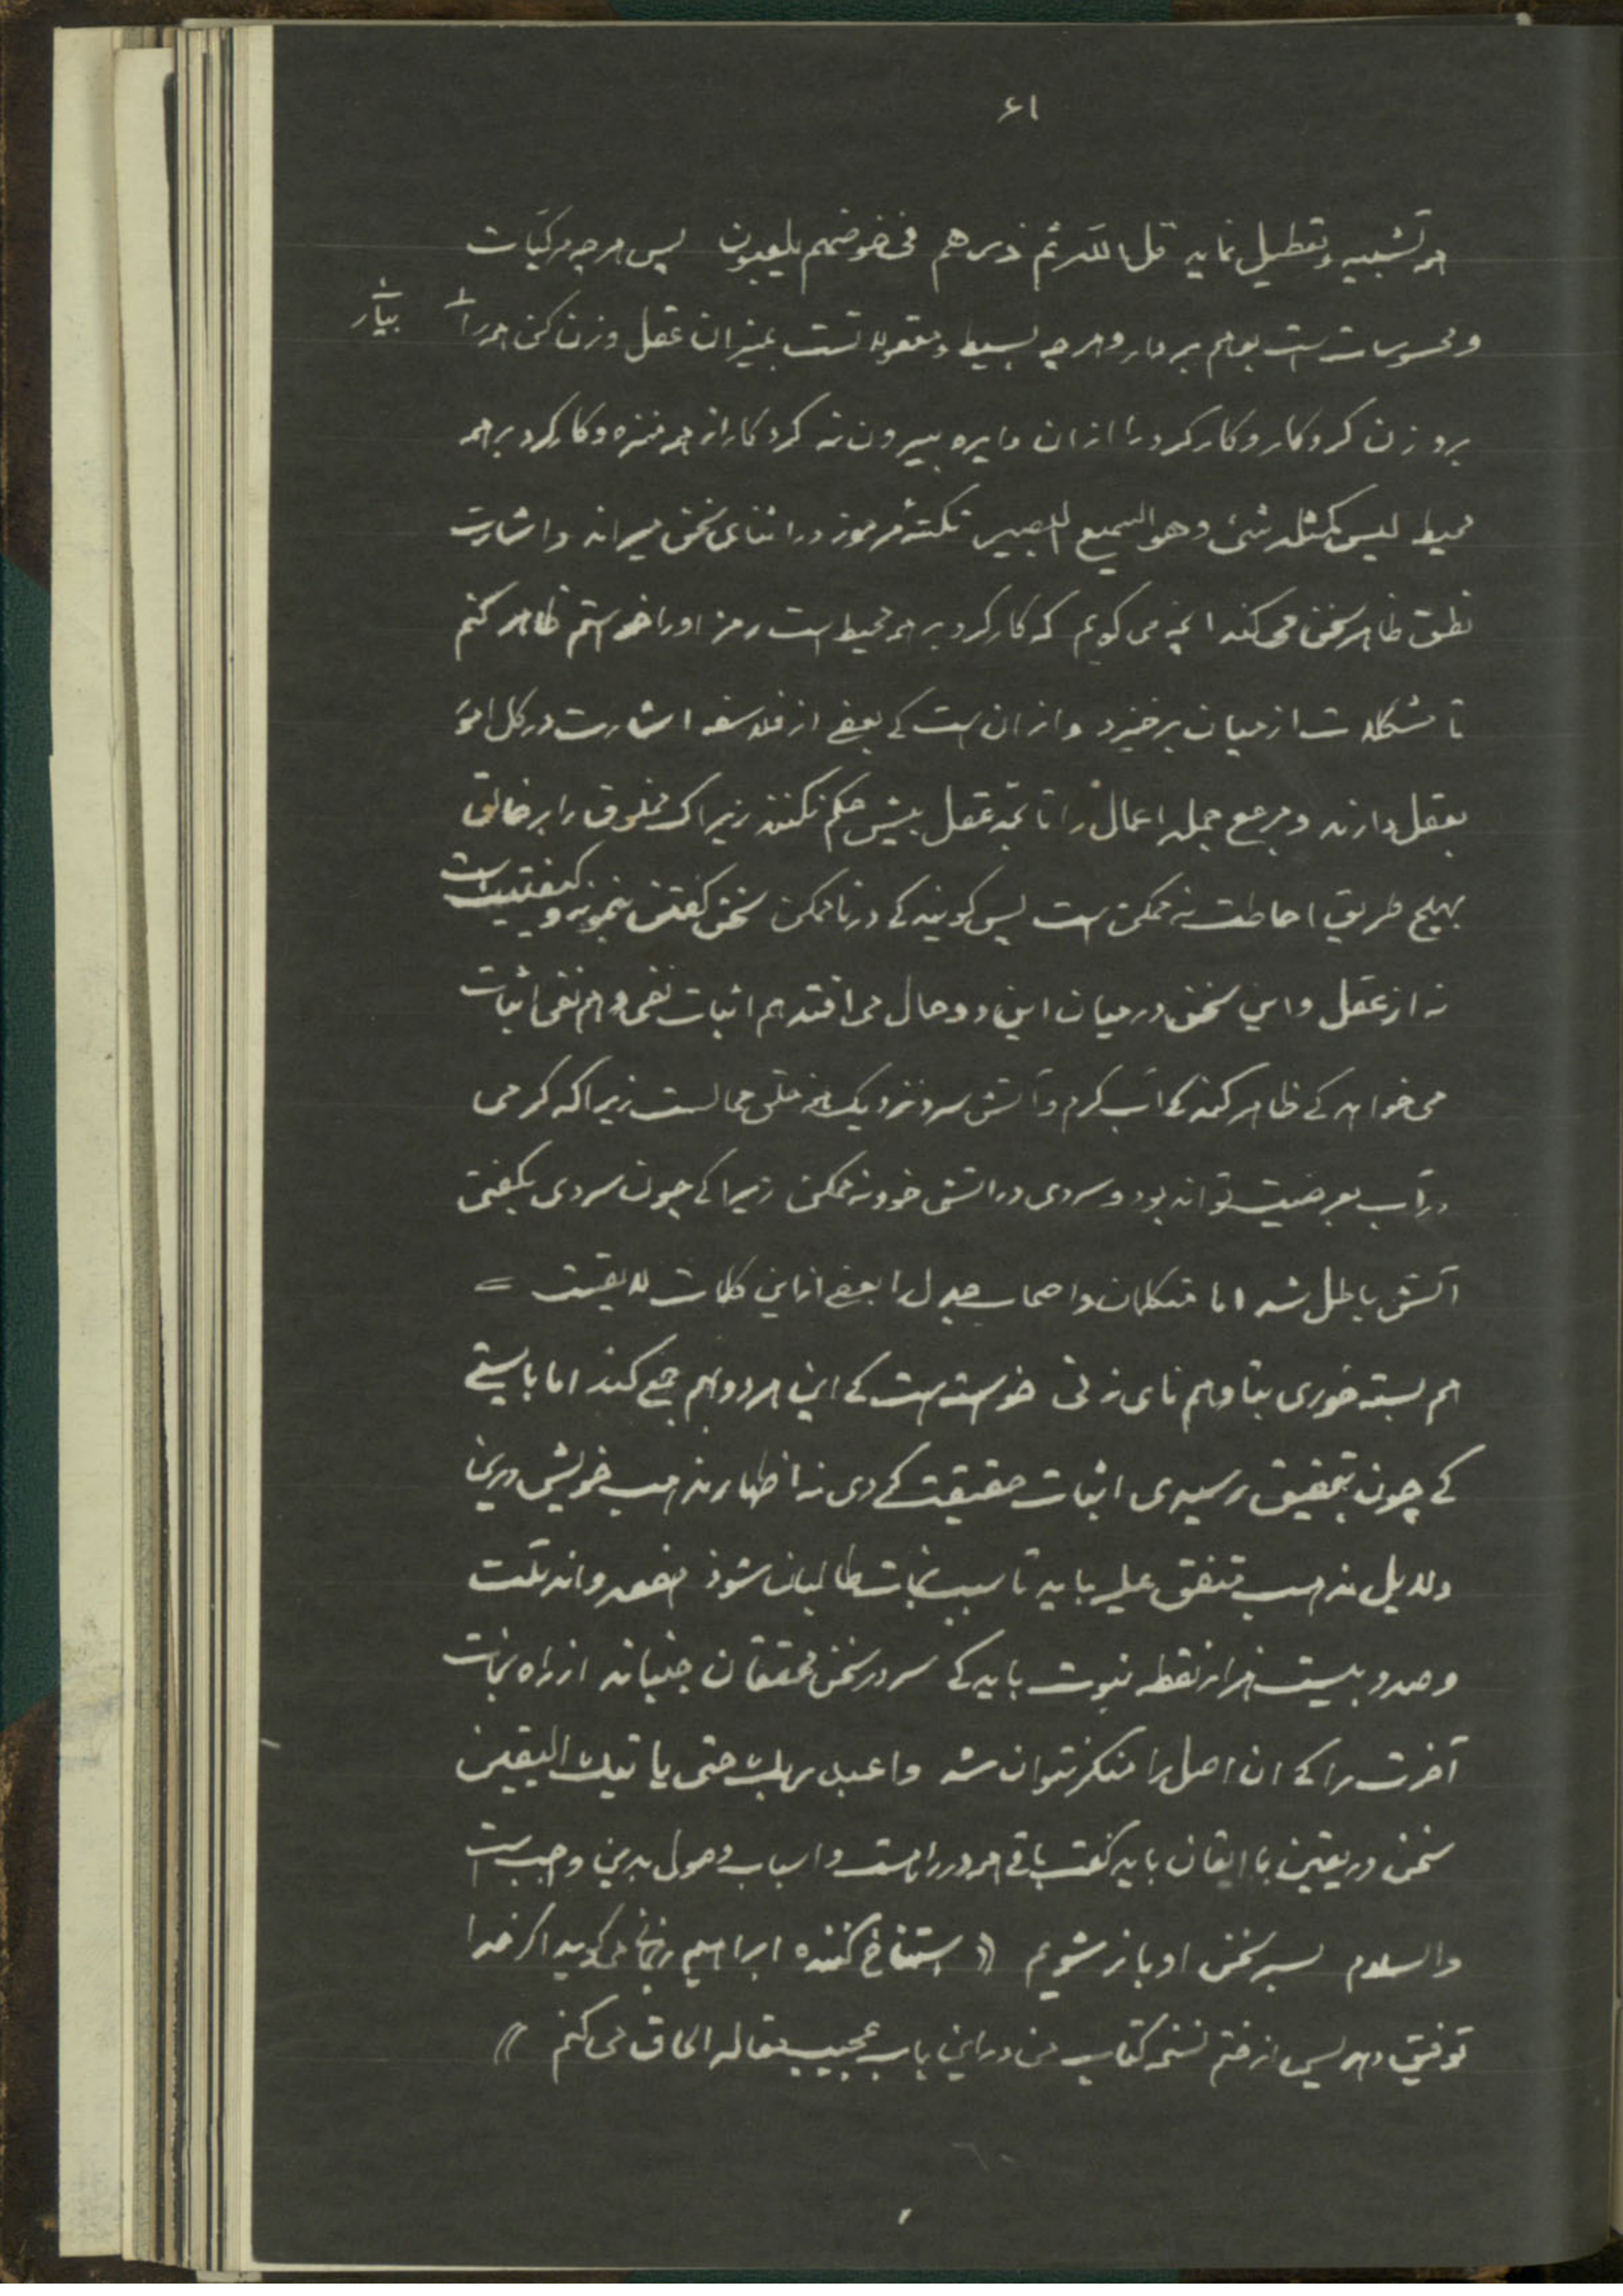 ۶۱
هم تشبیه و تعطیل نماید قل الله ثم ذرهم فی خوضهم یلعبون پس هرچه مرکبات
و محسوسات است بوهم بردار و هرچه بسیط و معقولاتست بمیزان عقل وزن کن همه را
بیار
بروزن کردکار و کارکرد را ازان دایره بیرون نه کردکار از همه منزه و کارکرد بر همه
محیط لیس کمثله شئ وهو السمیع البصیر نکتهٔ مرموز در اثنای سخن میراند و اشارت
نطق ظاهر سخن می کند آنچه می کویم که کارکرد بر همه محیط است رمز او را خواستم ظاهر کنم
تا مشکلات از میان برخیزد و از ان است کی بعضی از فلاسفه اشارت در کل امور
بعقل دارند و مرجع جمله اعمال را تا بحد عقل بیش حکم نکنند زیراک مخلوق را بر خالق
بهیچ طریق احاطت نه ممکن است پس کویند کی در ناممکن سخن کفتن
نه از عقل و این سخن در میان این دو حال می افتد هم اثبات نفی و هم نفی اثبات
می خواهد کی ظاهر کند کی آب کرم و آتش سرد نزدیک محالست زیرا که کرمی
در آب بعرضیت تواند بود و سردی در اتش خود نه ممکن زیرا کی چون سردی بکفتی
آتش باطل شد اما متکلمان و اصحاب جدل را بعضی از این کلمات لایقست =
هم بسته خوری بتا و هم نای زنی خواسته است کی این هر دو بهم جمع کند اما بایستی
کی چون بتحقیق رسیدی اثبات حقیقت کردی نه اظهار مذهب خویش
دلایل مذهب متفق علیه باید تا سبب نجات طالبان شود
و صد و بیست هزار نقطه نبوت باید کی سر در سخن محققان جنباند از راه نجات
آخرت را کی ان اصل را منکر نتوان شد واعبد ربک حتی یاتیک الیقین
سخن در یقین با ایقان باید کفت باقی همه در راهست و اسباب وصول بدین واجب است
والسلام بسر سخن او باز شویم (( استنساخ کننده ابراهیم زنجانی می کوید اکر خدا
توفیق دهد پس از ختم نسخه کتاب من در این باب عجیب مقاله الحاق می کنم ))